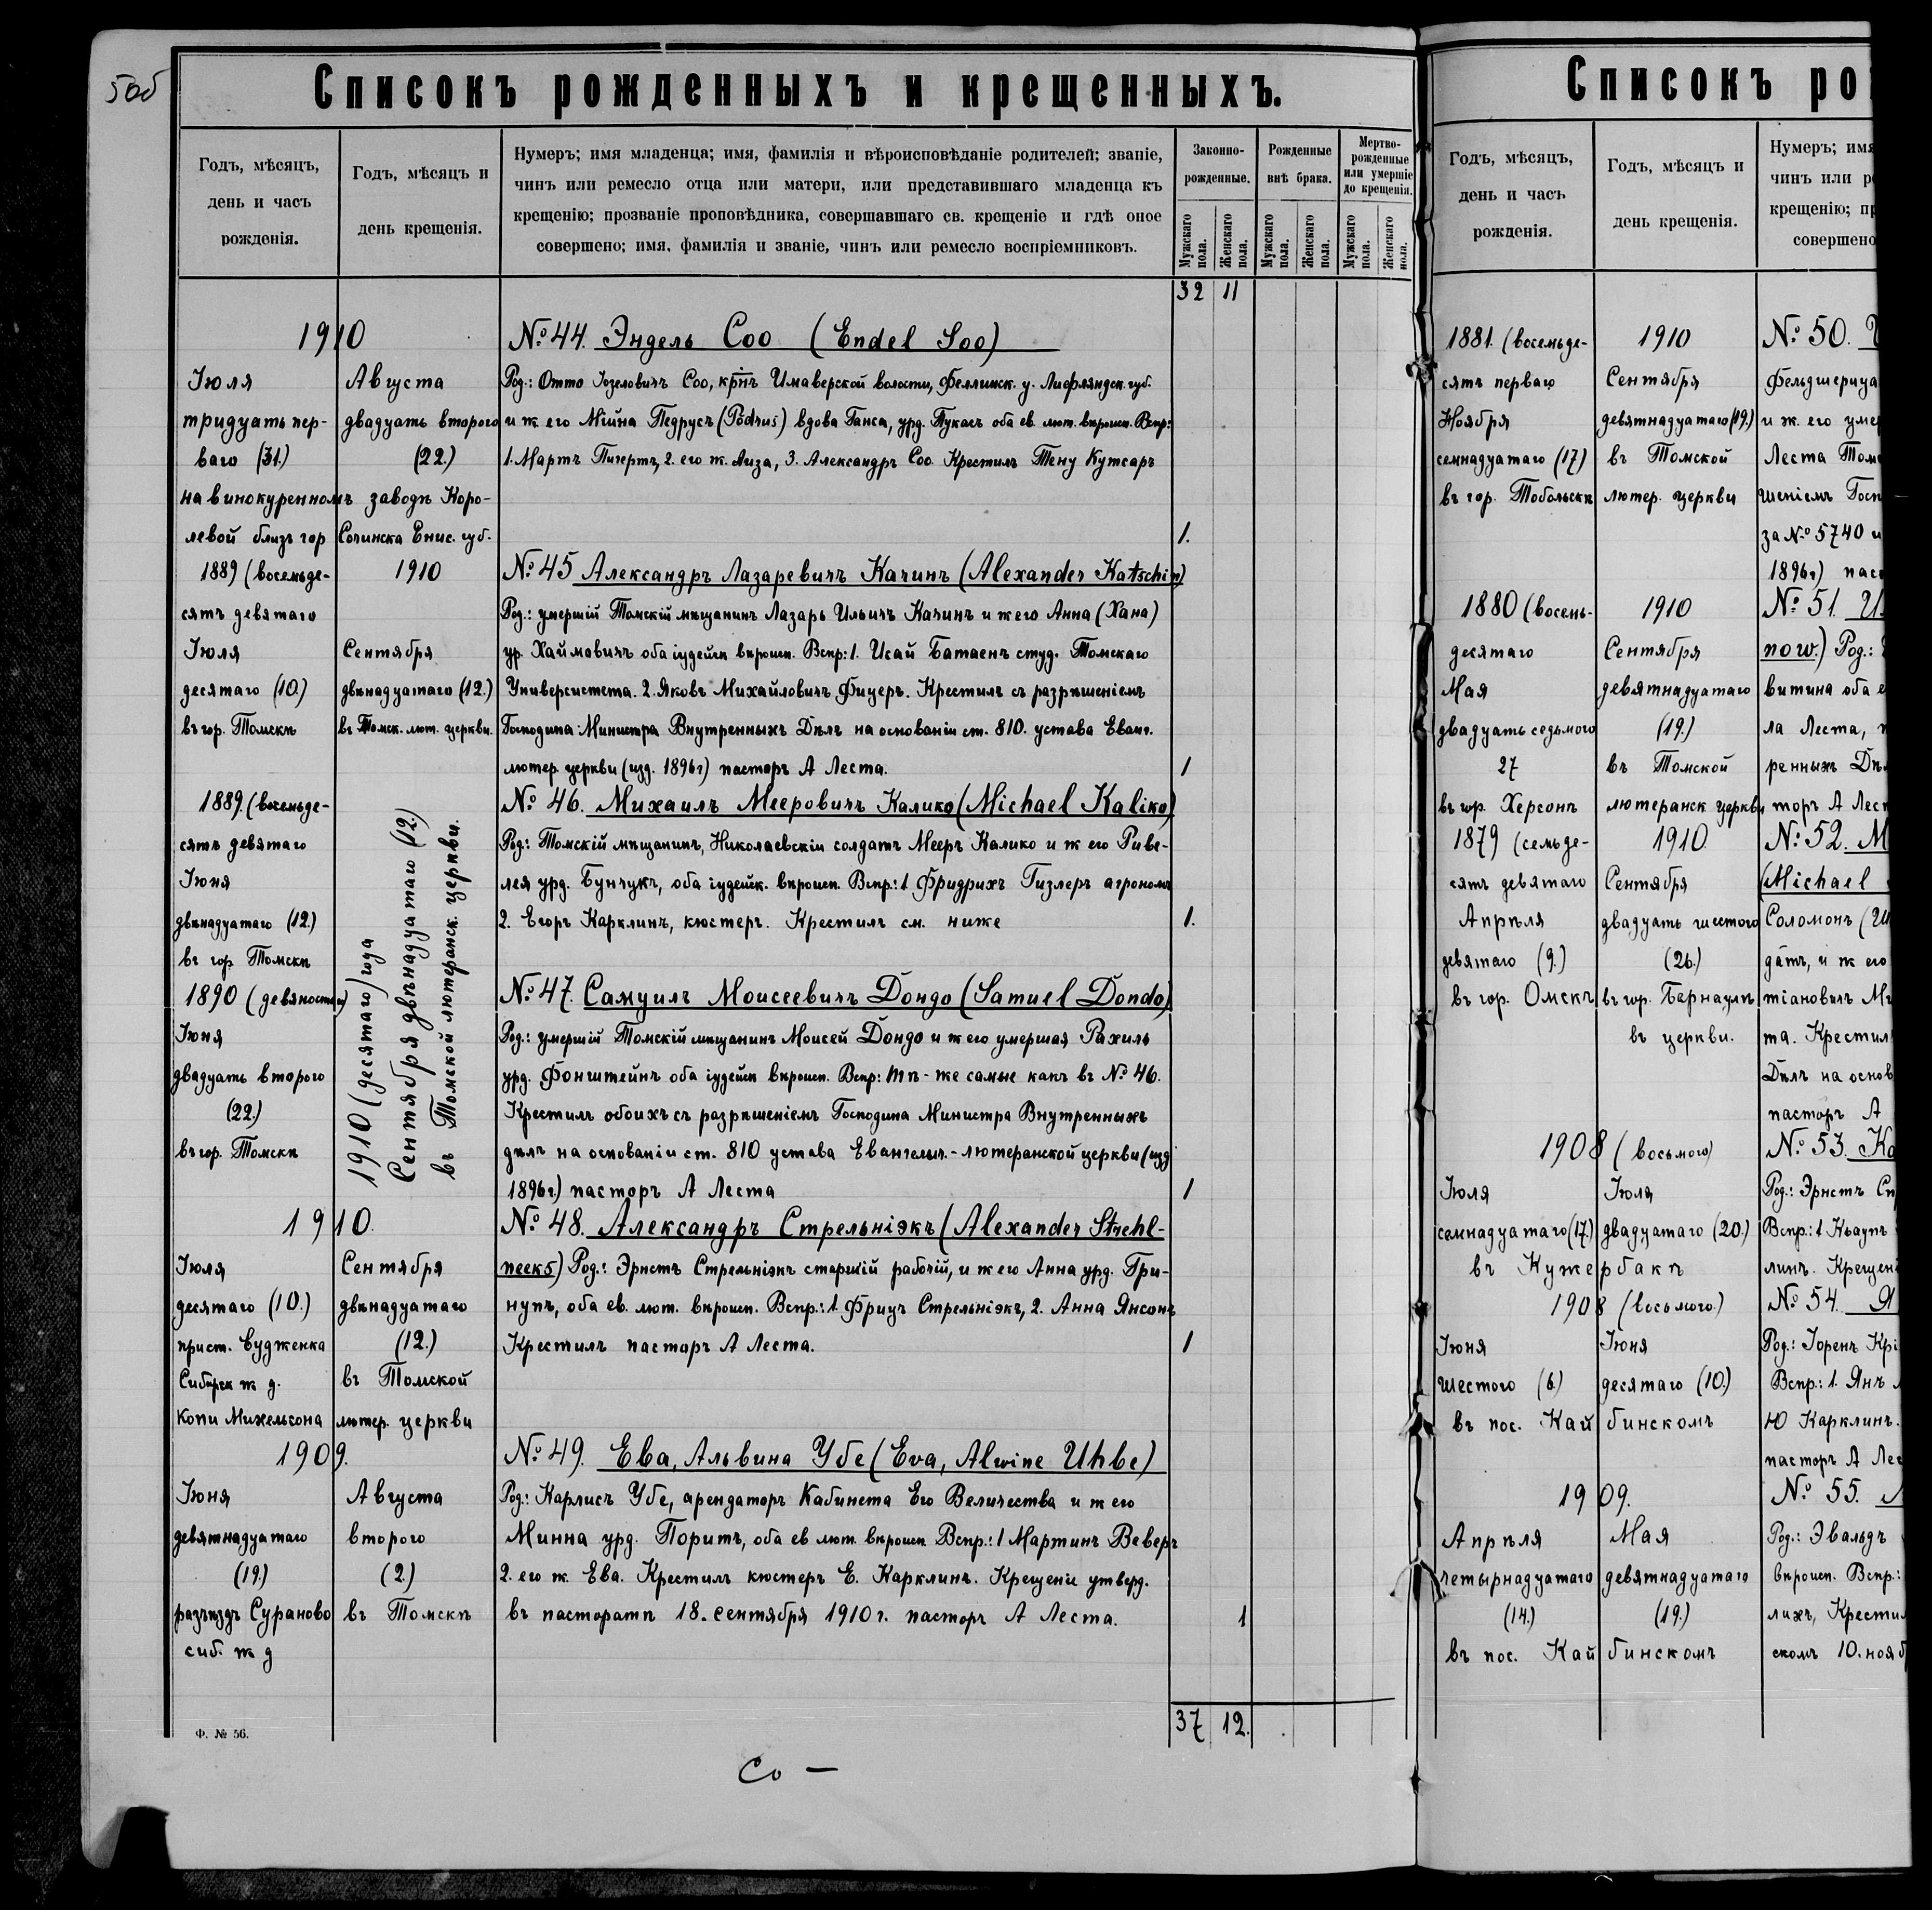 50об
Списокъ рожденныхъ и крещенныхъ.
Годъ, мѣсяцъ,
день и часъ
рожденія.
Годъ, мѣсяцъ и
день крещенія.
Нумеръ; имя младенца; имя, фамилія и вѣроисповѣданіе родителей; званіе,
чинъ или ремесло отца или матери, или представившаго младенца къ
крещенію; прозваніе проповѣдника, совершавшаго св. крещеніе и гдѣ оное
совершено; имя, фамилія и званіе, чинъ или ремесло воспріемниковъ.
Законно-
рожденные.
Рожденные
внѣ брака.
Мертво-
рожденные
или умершіе
до крещенія.
Мужскаго пола.
Женскаго пола.
Мужскаго пола.
Женскаго пола.
Мужскаго пола.
Женскаго пола.
32 11
1910
Іюля
тридцать пер-
ваго (31.)
Августа
двадцать второго
(22.)
на винокуренномъ заводѣ Коро-
левой близъ гор Сочинска Енис. губ.
№ 44. Эндель Соо (Endel Soo)
Род.: Отто Іозеловичъ Соо, крнъ Имаверской волости, Феллинск. у. Лифляндск. губ.
и ж. его Мійна Педрусъ (Pödrus) вдова Ганса, урд. Пукасъ оба ев. лют. вѣроисп. Вспр:
1. Мартъ Пигертъ, 2. его ж. Лиза, 3. Александръ Соо. Крестилъ Тену Кутсаръ
1.
1889 (восемьде-
сятъ девятаго
Іюля
десятаго (10.)
въ гор. Томскѣ
1910
Сентября
двѣнадцатаго (12.)
въ Томск. лют. церкви.
№ 45 Александръ Лазаревичъ Качинъ (Alexander Katschin)
Род.: умершій Томскій мѣщанинъ Лазарь Ильичъ Качинъ и ж его Анна (Хана)
ур. Хаймовичъ оба іудейск вѣроисп. Вспр: 1. Исай Батаенъ студ. Томскаго
Университета. 2. Яковъ Михайловичъ Фицеръ. Крестилъ съ разрѣшеніемъ
Господина Министра Внутренныхъ Дѣлъ на основаніи ст. 810. устава Еванг.
лютер. церкви (изд. 1896г) пасторъ А Леста.
1
1889. (восемьде-
сятъ девятаго
Іюня
двѣнадцатаго (12.)
въ гор Томскѣ
1910 (десятаго) года
Сентября двѣнадцатаго (12.)
въ Томской лютеранск. церкви.
№ 46. Михаилъ Мееровичъ Калико (Michael Kaliko)
Род.: Томскій мѣщанинъ, Николаевскій солдатъ Мееръ Калико и ж его Риве-
лея урд. Бунчукъ, оба іудейск. вѣроисп. Вспр.: 1 Фридрихъ Гизлеръ агрономъ
2. Егоръ Карклинъ, кюстеръ. Крестилъ см. ниже
1.
1890 (девяностый)
Іюня
двадцать второго
(22.)
въ гор. Томскѣ
№ 47. Самуилъ Моисеевичъ Дондо (Samuel Dondo)
Род.: умершій Томскій мѣщанинъ Моисей Дондо и ж его умершая Рахиль
урд. Фонштейнъ оба іудейск вѣроисп. Вспр: тѣ-же самые какъ въ № 46.
Крестилъ обоихъ съ разрѣшеніемъ Господина Министра Внутренныхъ
дѣлъ на основаніи ст. 810 устава Евангелич.-лютеранской церкви (изд
1896г.) пасторъ А Леста
1
1910.
Іюля
десятаго (10.)
прист. Судженка
Сибирск ж д.
копи Михельсона
Сентября
двѣнадцатаго
(12.)
въ Томской
лютер. церкви
№ 48. Александръ Стрельніэкъ (Alexander Strehl-
neeks) Род.: Эрнстъ Стрельніэкъ старшій рабочій, и ж его Анна урд. Гри-
нупъ, оба ев. лют. вѣроисп. Вспр.: 1. Фрицъ Стрельніэкъ, 2. Анна Янсонъ
Крестилъ пасторъ А Леста.
1
1909.
Іюня
девятнадцатаго
(19.)
разъѣздъ Сураново
сиб. ж д
Августа
второго
(2.)
въ Томскѣ
№ 49. Ева, Альвина Убе (Eva, Alwine Uhbe)
Род.: Карлисъ Убе, арендаторъ Кабинета Его Величества и ж его
Минна урд. Поритъ, оба ев лют. вѣроисп Вспр.: 1 Мартинъ Веверъ
2. его ж. Ева. Крестилъ кюстеръ Е. Карклинъ. Крещеніе утверд.
въ пасторатѣ 18. сентября 1910 г. пасторъ А Леста.
1
37 12.
Ф. № 56.
Со —
Списокъ ро
Годъ, мѣсяцъ,
день и часъ
рожденія.
Годъ, мѣсяцъ и
день крещенія.
Нумеръ; имя
чинъ или р
крещенію; пр
совершено
1881. (восемьде-
сятъ перваго
Ноября
семнадцатаго (17)
въ гор. Тобольскѣ
1910
Сентября
девятнадцатаго (19.)
въ Томской
лютер. церкви
№ 50.
Фельдшерица
и ж. его умер
Леста Том
шеніемъ Госп
за № 5740 и
1896г) паст
1880 (восемь-
десятаго
Мая
двадцать седьмого
27
въ гор. Херсонъ
1910
Сентября
девятнадцатаго
(19.)
въ Томской
лютеранск церкви
№ 51. И
now.) Род.:
витина оба е
ла Леста,
ренныхъ Дѣл
торъ А Лест
1879 (семьде-
сятъ девятаго
Апрѣля
девятаго (9.)
въ гор. Омскъ
1910.
Сентября
двадцать шестого
(26.)
въ гор. Барнаулѣ
въ церкви.
№ 52. М
(Michael
Соломонъ (Ш
датъ, и ж его
тіановичъ Ми
та. Крестил
Дѣлъ на основ
пасторъ А
1908 (восьмого)
Іюля
семнадцатаго (17.)
Іюля
двадцатаго (20.)
въ Кужербакѣ
№ 53. Ка
Род.: Эрнстъ Сп
Вспр.: 1 Кваупъ
линъ. Крещен
1908 (восьмого.)
Іюня
шестого (6.)
Іюня
десятаго (10.)
въ пос. Кайбинскомъ
№ 54. Я
Род.: Іоренъ Крі
Вспр.: 1. Янъ
Ю Карклинъ.
пасторъ А Лес
1909.
Апрѣля
четырнадцатаго
(14.)
Мая
девятнадцатаго
(19.)
въ пос. Кайбинскомъ
№ 55.
Род.: Эвальдъ
вѣроисп. Вспр.:
лихъ, Крестил
скомъ 10. нояб